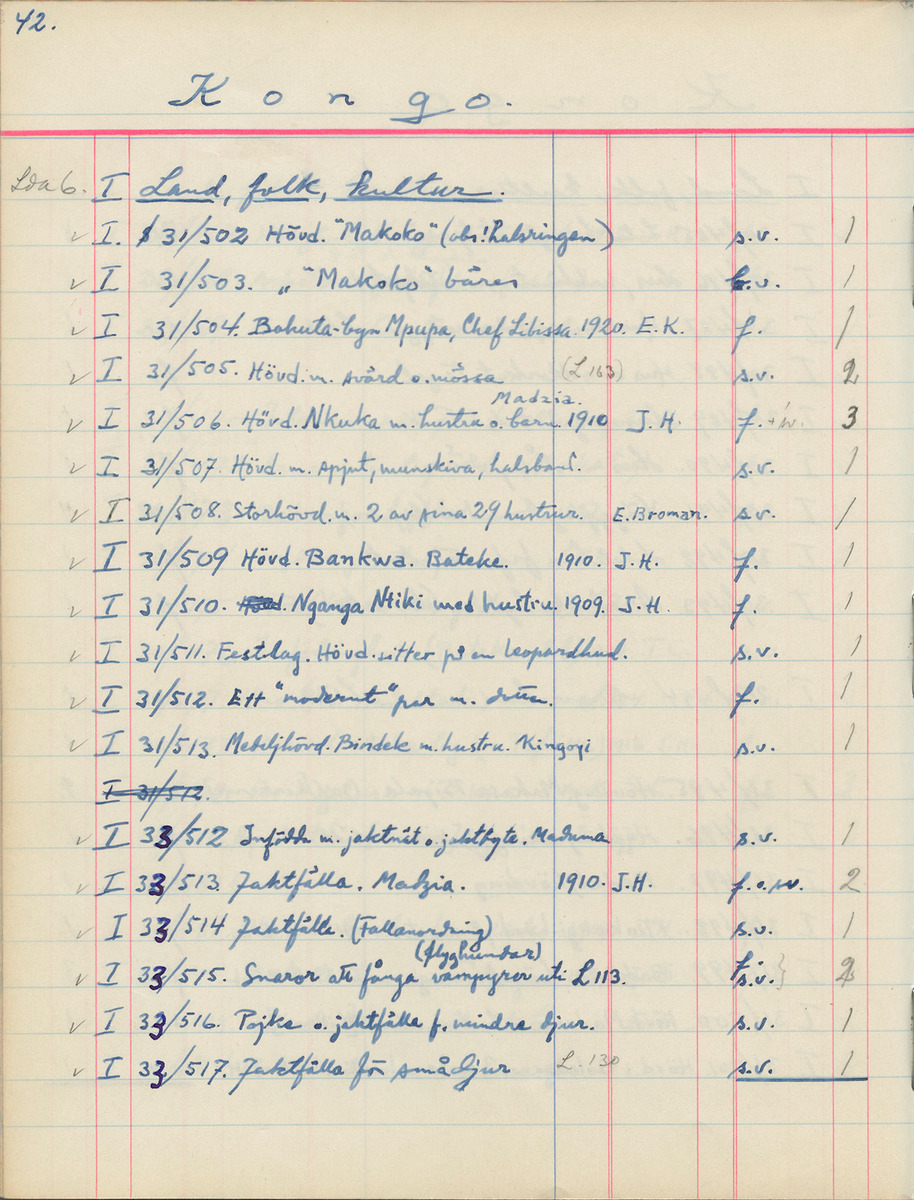 42.
Kongo.
Lda 6. I Land, folk, kultur.
✓ I. 31/502 Hövd. "Makoko" (obs! halsringen) s.v. 1
✓ I 31/503. „ "Makoko" bäres s.v. 1
✓ I 31/504. Bahuta-byn Mpupa, Chef Libissa. 1920. E.K. f. 1
✓ I 31/505. Hövd. m. svärd o. mössa (L 163) s.v. 2
Madzia.
✓ I 31/506. Hövd. Nkuka m. hustru o. barn. 1910 J.H. f. + sv. 3
✓ I 31/507. Hövd. m. spjut, munskiva, halsband. s.v. 1
✓ I 31/508. Storhövd. m. 2 av sina 29 hustrur. E. Broman. s.v. 1
✓ I 31/509 Hövd. Bankwa. Bateke. 1910. J.H. f. 1
✓ I 31/510. Hövd. Nganga Ntiki med hustru. 1909. J.H. f. 1
✓ I 31/511. Festdag. Hövd. sitter på en leopardhud. s.v. 1
✓ I 31/512. Ett "modernt" par m. dotter. f. 1
✓ I 31/513. Hövd. Bindek m. hustru. Kingoyi s.v. 1
I 31/512.
✓ I 33/512 Infödda m. jaktnät o. jaktbyte. Maduma s.v. 1
✓ I 33/513. Jaktfälla. Madzia. 1910. J.H. f. o. sv. 2
✓ I 33/514 Jaktfälla. (Fallanordning) s.v. 1
(flyghundar) f.
✓ I 33/515. Snaror att fånga vampyrer uti L 113. s.v. } 2
✓ I 33/516. Pojke o. jaktfälla f. mindre djur. s.v. 1
✓ I 33/517. Jaktfälla för smådjur L. 130 s.v. 1